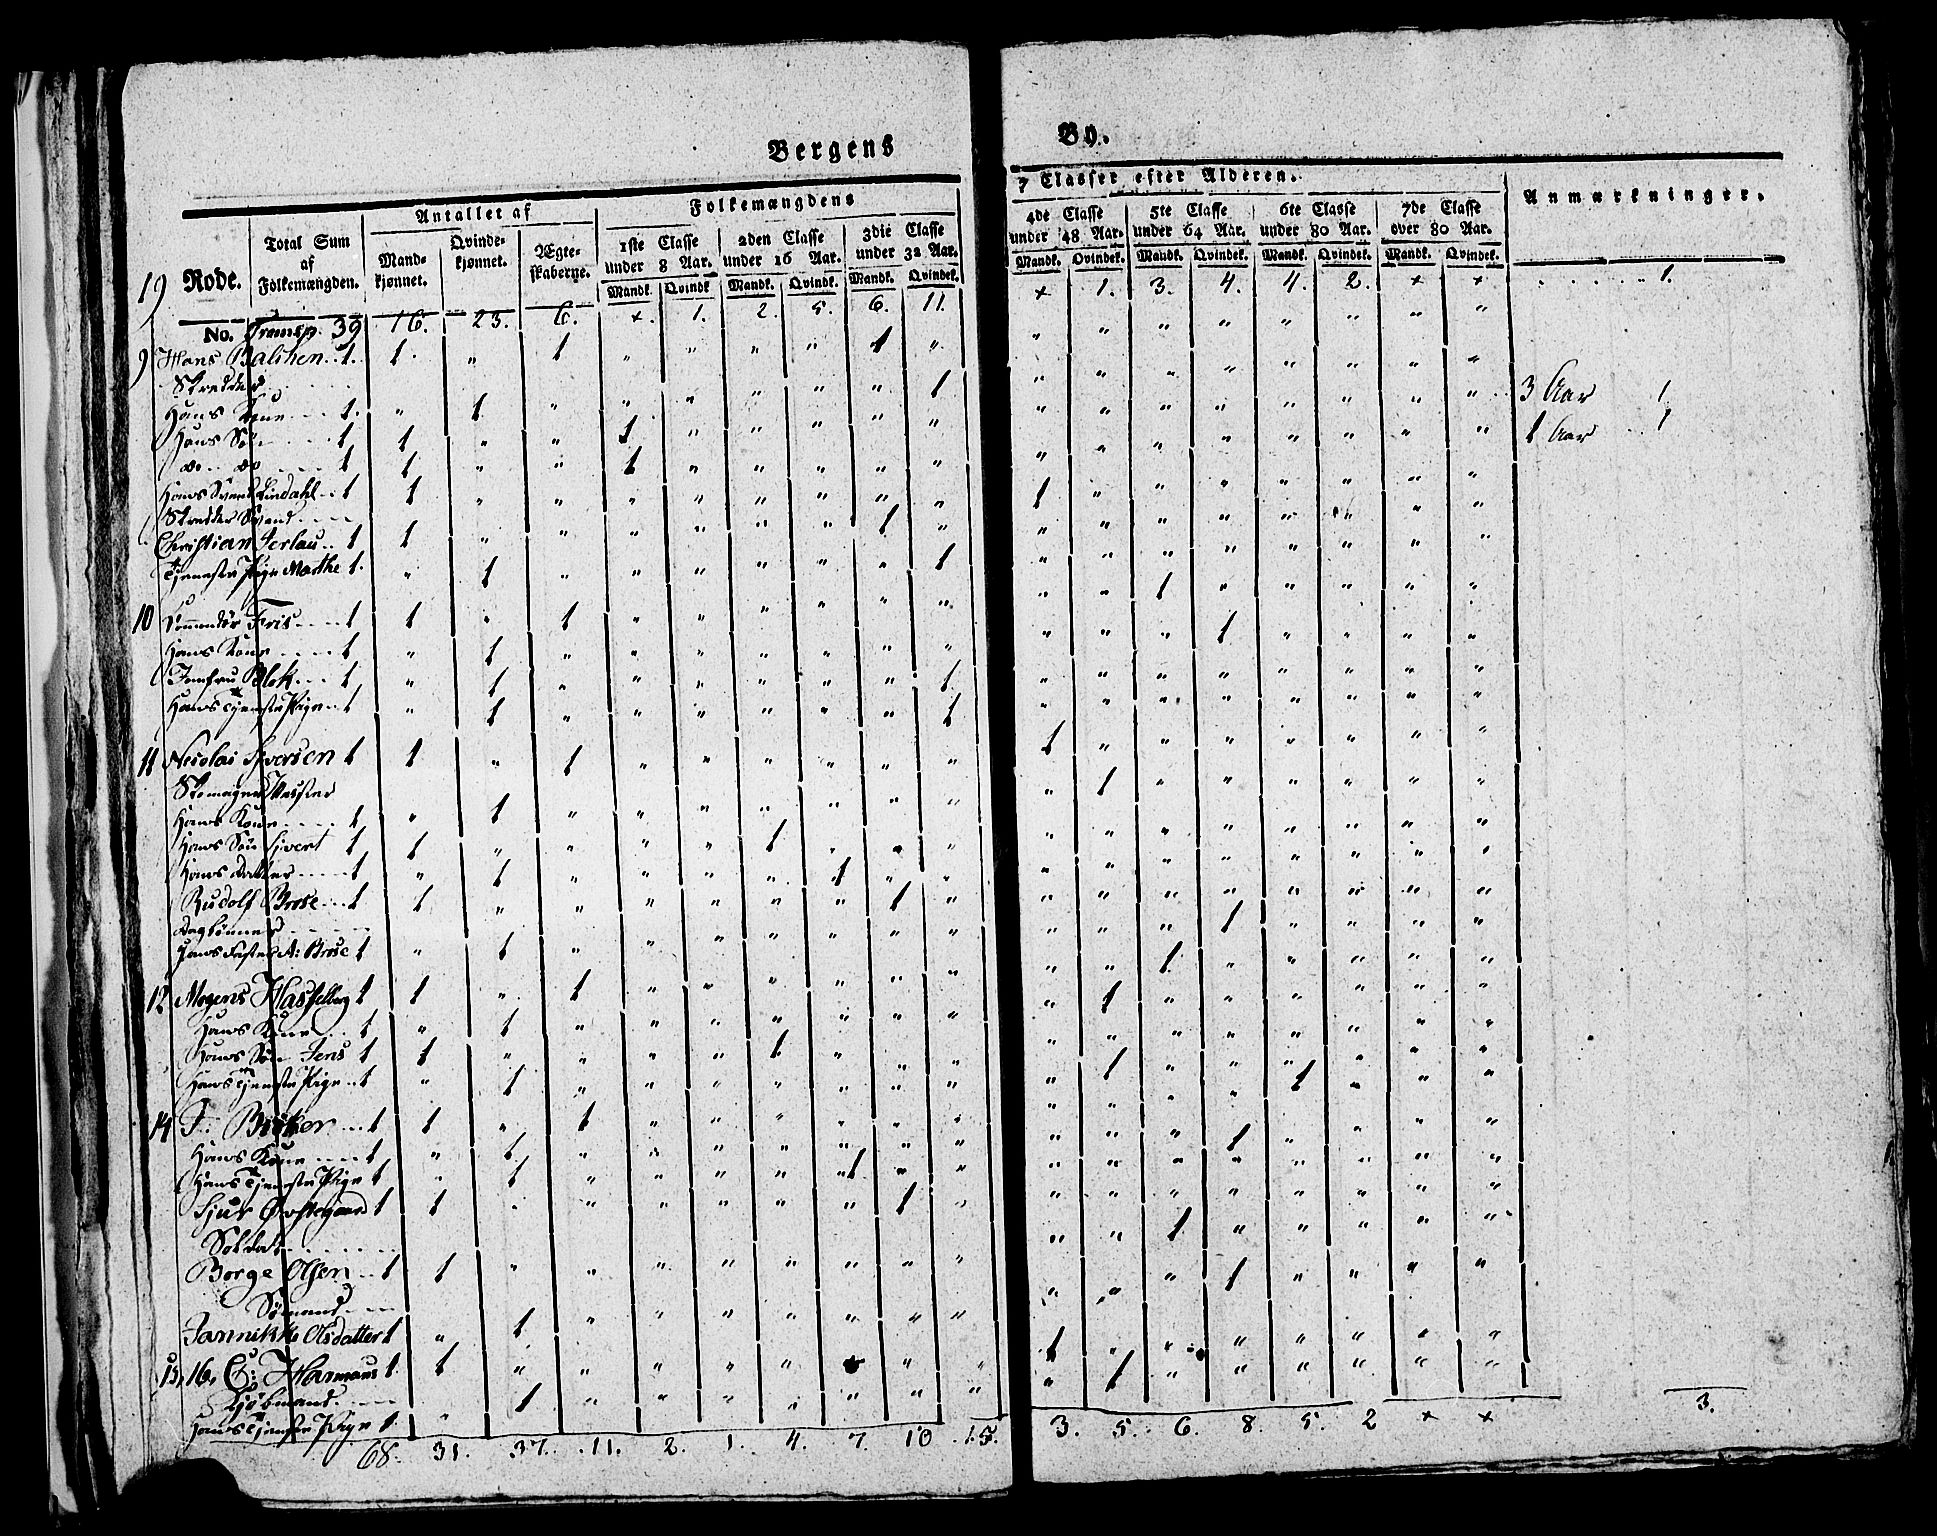 Bergens By.
19
Rode.
Total Sum af Folkemængden.
Antallet af
Mandkjønnet.
Qvindekjønnet.
Ægteskaberne.
Folkemængdens 7 Classer efter Alderen.
1ste Classe under 8 Aar.
2den Classe under 16 Aar.
3die Classe under 32 Aar.
4de Classe under 48 Aar.
5te Classe under 64 Aar.
6te Classe under 80 Aar.
7de Classe over 80 Aar.
Mandk. Qvindk. Mandk. Qvindk. Mandk. Qvindk. Mandk. Qvindek. Mandk. Qvindek. Mandk. Qvindek. Mandk. Qvindek.
Anmærkninger.
No. Transp. 39 16. 23. 6. +. 1. 2. 5. 6. 11. + 1. 3. 4. 4. 2. + + 1.
9 Hans Balchen 1. 1. " 1 " " " " 1 "
Skredder
Hans Kone 1. " 1 " " " " " " 1
Hans Søn 1 1 " " 1 " " " " " 3 Aar 1
do do 1 1 " " 1 " " " " " 1 Aar 1
Lindahl 1 1 " " " " " " " " 1
Skredder Svend
Christian 1 1 " " " " " " 1 "
Tjeneste Pige Marthe 1. " 1 " " " " " " 1
10 Commandör Friis 1 1 " 1 " " " " " " " " 1
Hans Kone 1 " 1 " " " " " " " " " " 1
Jomfru Blok 1 " 1 " " " " " " 1
Hans Tjeneste Pige 1 " 1 " " " " " " 1
11 Nicolai Iversen 1 1 " 1 " " " " " " 1
Skomager Mester
Hans Kone 1 " 1 " " " " " " " " 1
Hans Søn Sivert 1 1 " " " " 1
Hans Datter 1 " 1 " " " " 1
Rudolf Brose 1 1 " " " " " " 1 "
Hans Søster A: Brose 1 " 1 " " " " " " " " " " 1
12 Mogens Hasselberg 1 1 " 1 " " " " " " " " 1
Hans Kone 1 " 1 " " " " " " " " 1
Hans Søn Jens 1 1 " " " " 1
Hans Tjeneste Pige 1 " 1 " " " " " " " " 1
14 F. 1 1 " 1 " " " " " " " " " " 1
Hans Kone 1 " 1 " " " " " " " " " " 1
Hans Tjeneste Pige 1 " 1 " " " " 1
Sjur 1 1 " " " " " " 1 "
Soldat
Børge Olsen 1 1 " " " " " " " " " " 1
Sømand
Jannikke Olsdatter 1 " 1 " " " " " " " " " " 1
15, 16, C: Harmans 1. 1 " " " " " " " " 1
Kjøbmand
Hans Tjeneste Pige 1. " 1 " " " " " " " " 1
68. 31. 37. 11. 2. 1. 4. 7. 10 15. 3. 5. 6. 8. 5. 2 + + 3.